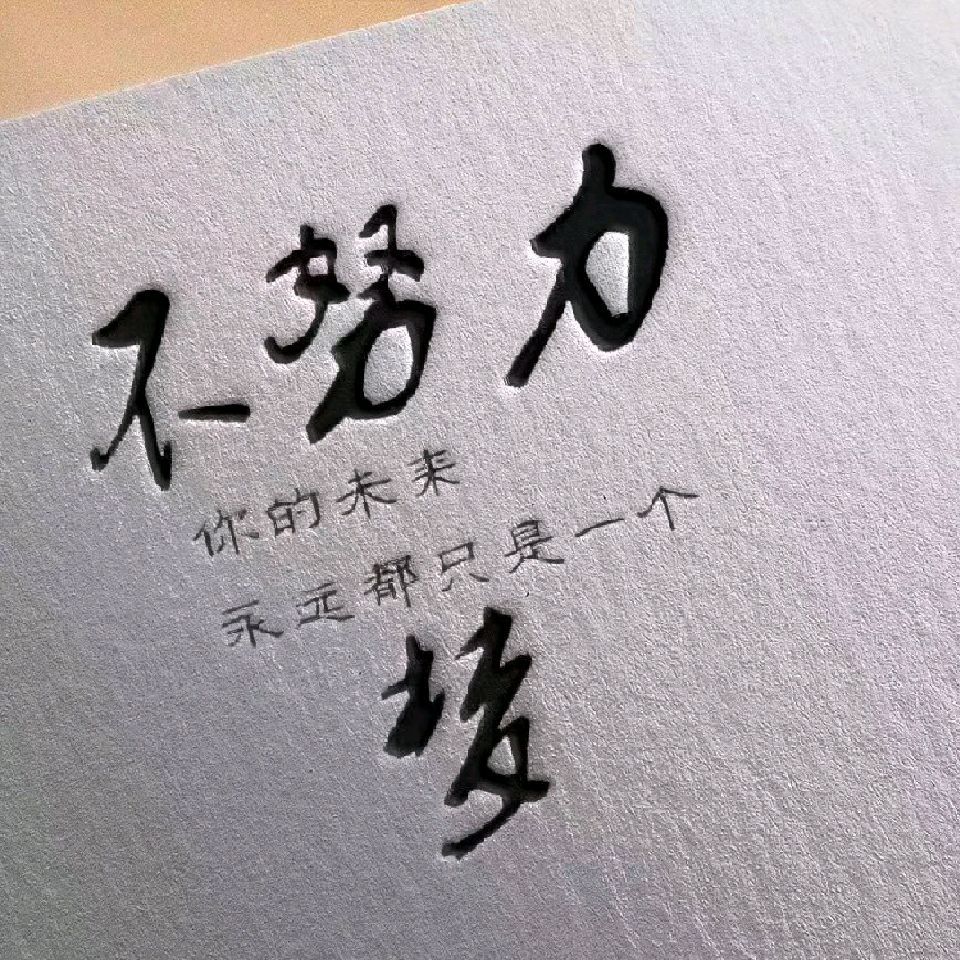 不努力
你的未来
永远都只是一个
梦